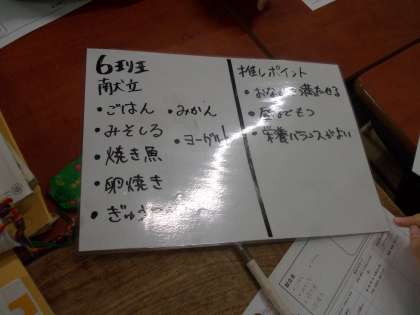 6班
献立
・ごはん
・みかん
・みそしる
・ヨーグルト
・焼き魚
・卵焼き
・ぎゅう
推しポイント
・おなかを満たせる
・昼までもつ
・栄養バランスがよい